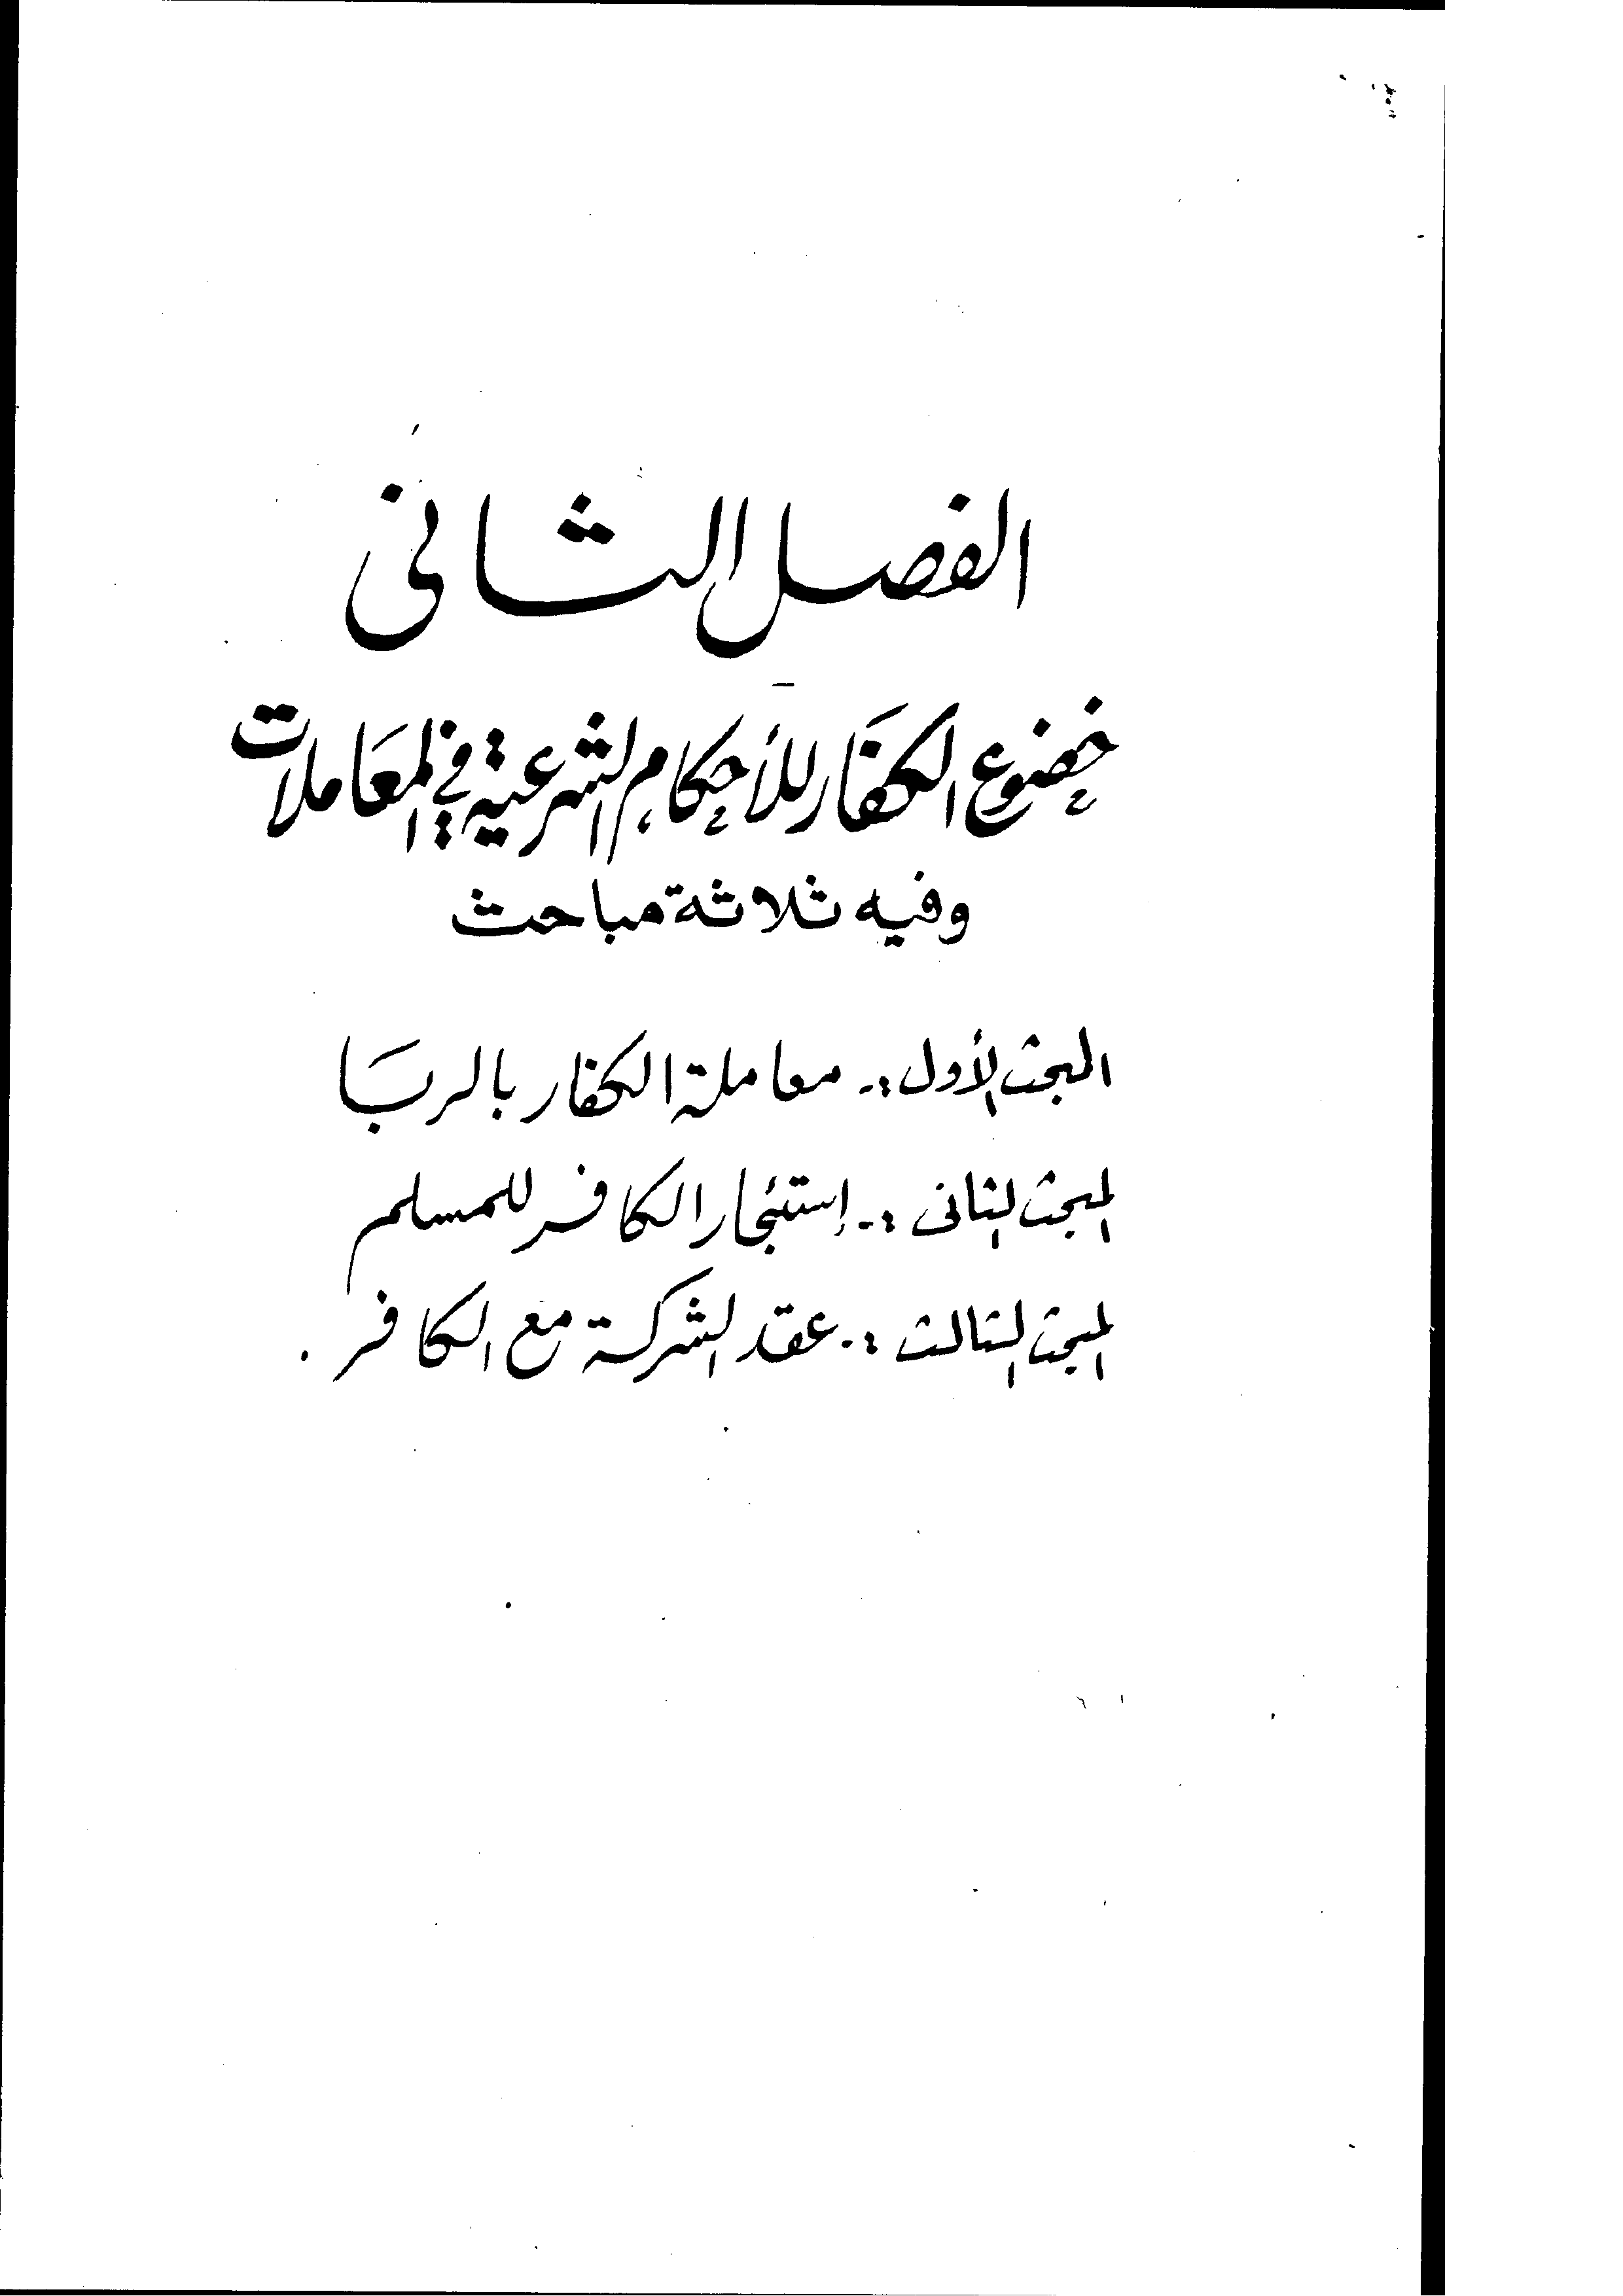 الفصل الثانى
خضوع الكفار للأحكام الشرعية في المعاملات
وفيه ثلاثة مباحث
المبحث الأول :- معاملة الكفار بالربا
المبحث الثانى :- إستئجار الكافر للمسلم
المبحث الثالث :- عقد الشركة مع الكافر .